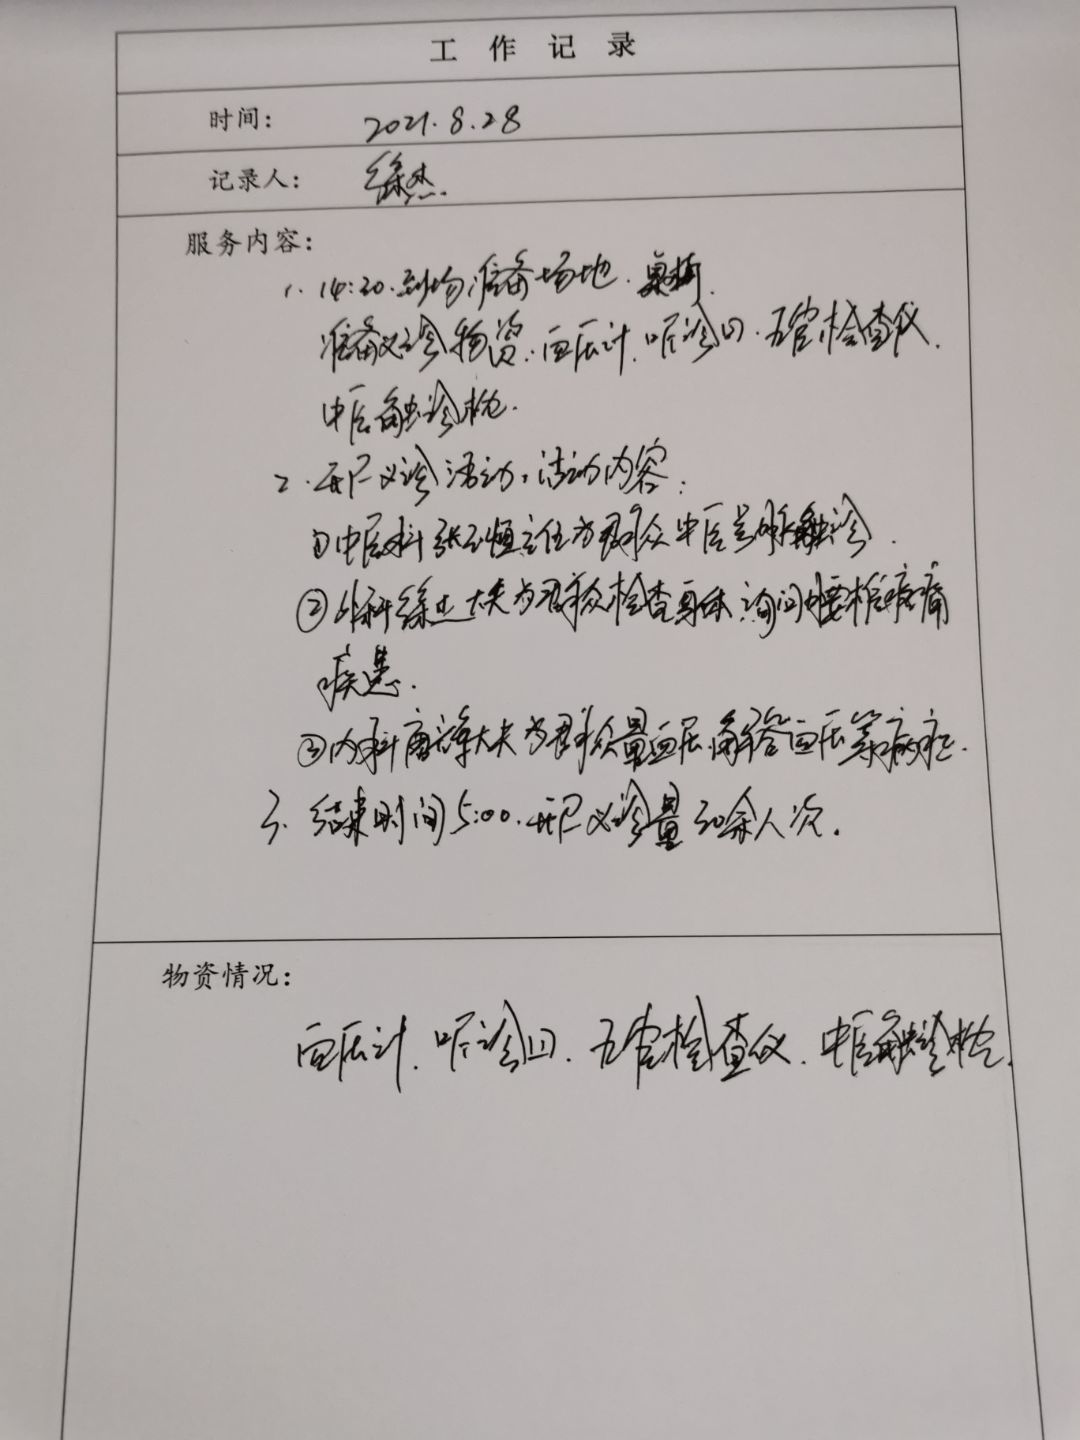 工作记录
时间: 2021.8.28
记录人:
服务内容:
1. 14:30.到场准备场地.
准备义诊物资:血压计.听诊口.五官检查仪.
中医触诊枕.
2. 开展义诊活动.活动内容:
①中医科张玉恒主任为群众中医号脉触诊.
②外科徐 大夫为群众检查身体.询问腰椎疼痛
疾患.
③内科唐 大夫为群众量血压.解答血压等病症.
3. 结束时间5:00.开展义诊量30余人次.
物资情况:
血压计.听诊口.五官检查仪.中医触诊枕.